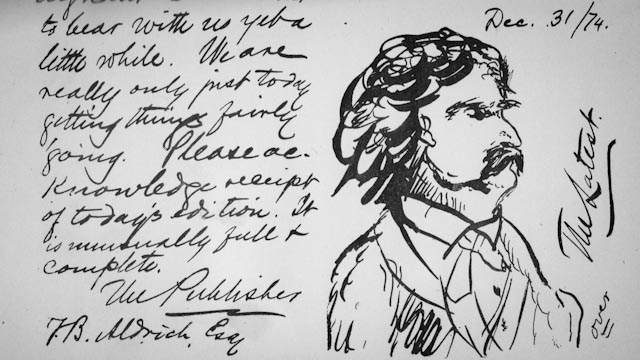 to bear with us yet a
little while. We are
really only just today
getting things fairly
going. Please ac-
knowledge receipt
of today's edition. It
is unusually full &
complete.
The Publisher
T.B. Aldrich, Esq
Dec. 31/74.
The Latest.
over